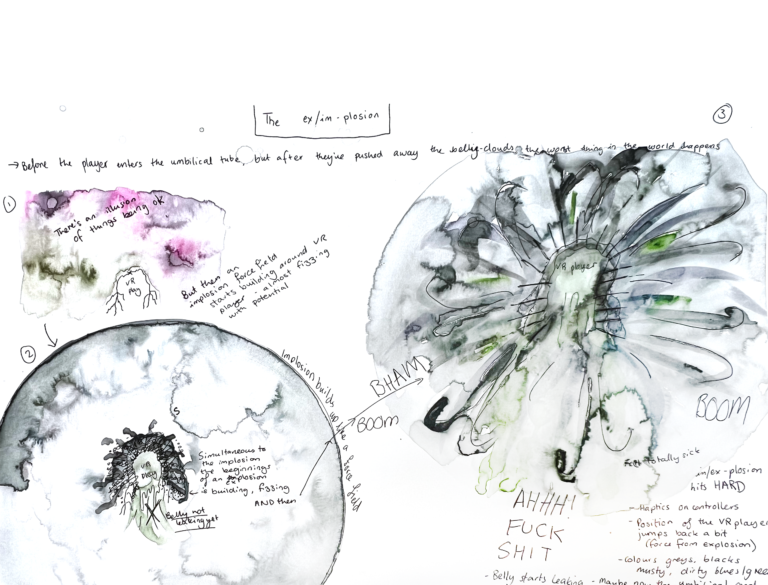 The ex/im-plosion
③
→ Before the player enters the umbilical tube, but after they've pushed away the belly-clouds the worst thing in the world happens
①
There's an illusion
of things being ok
VR
play
But then an
implosion force field
starts building around VR
player - almost fizzing
with potential
②
Implosion builds
up like a force field
VR
play
Simultaneous to
the implosion
the beginnings
of an explosion
is building, fizzing
AND then
Belly not
leaking yet
BHAM
BOOM
VR player
BOOM
totally sick
in/ex-plosion
hits HARD
AHHH!
FUCK
SHIT
- Haptics on controllers
- Position of the VR player
jumps back a bit
(force from explosion)
- colours greys, blacks
musty, dirty blues/gree
- Belly starts leaking - maybe now the umbilical